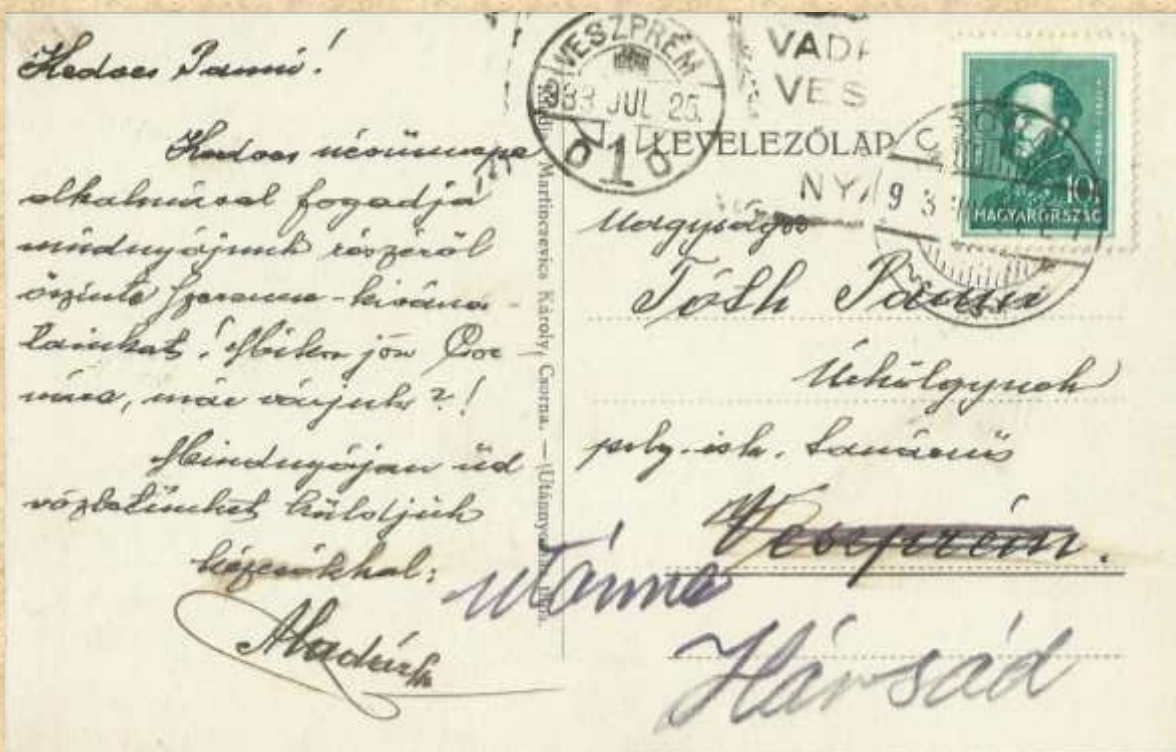 Kedves Panni!
Kedves névünnepe
alkalmával fogadja
mindnyájunk részéről
őszinte szerencse-kívána-
tainkat! Mikor jön Csor-
nára, már várjuk?!
Mindnyájan üd
vözletünket küldjük
kézcsókkal:
Aladárék
Martincsevics Károly, Csorna. — (Utánnyomás
VESZPRÉM
933 JUL 25.
1
VADÁ
VES
NYA
LEVELEZŐLAP
10f
MAGYARORSZÁG
Nagyságos
Tóth Panni
Úrhölgynek
polg. isk. tanárnő
Veszprém.
utánna
Hárságy